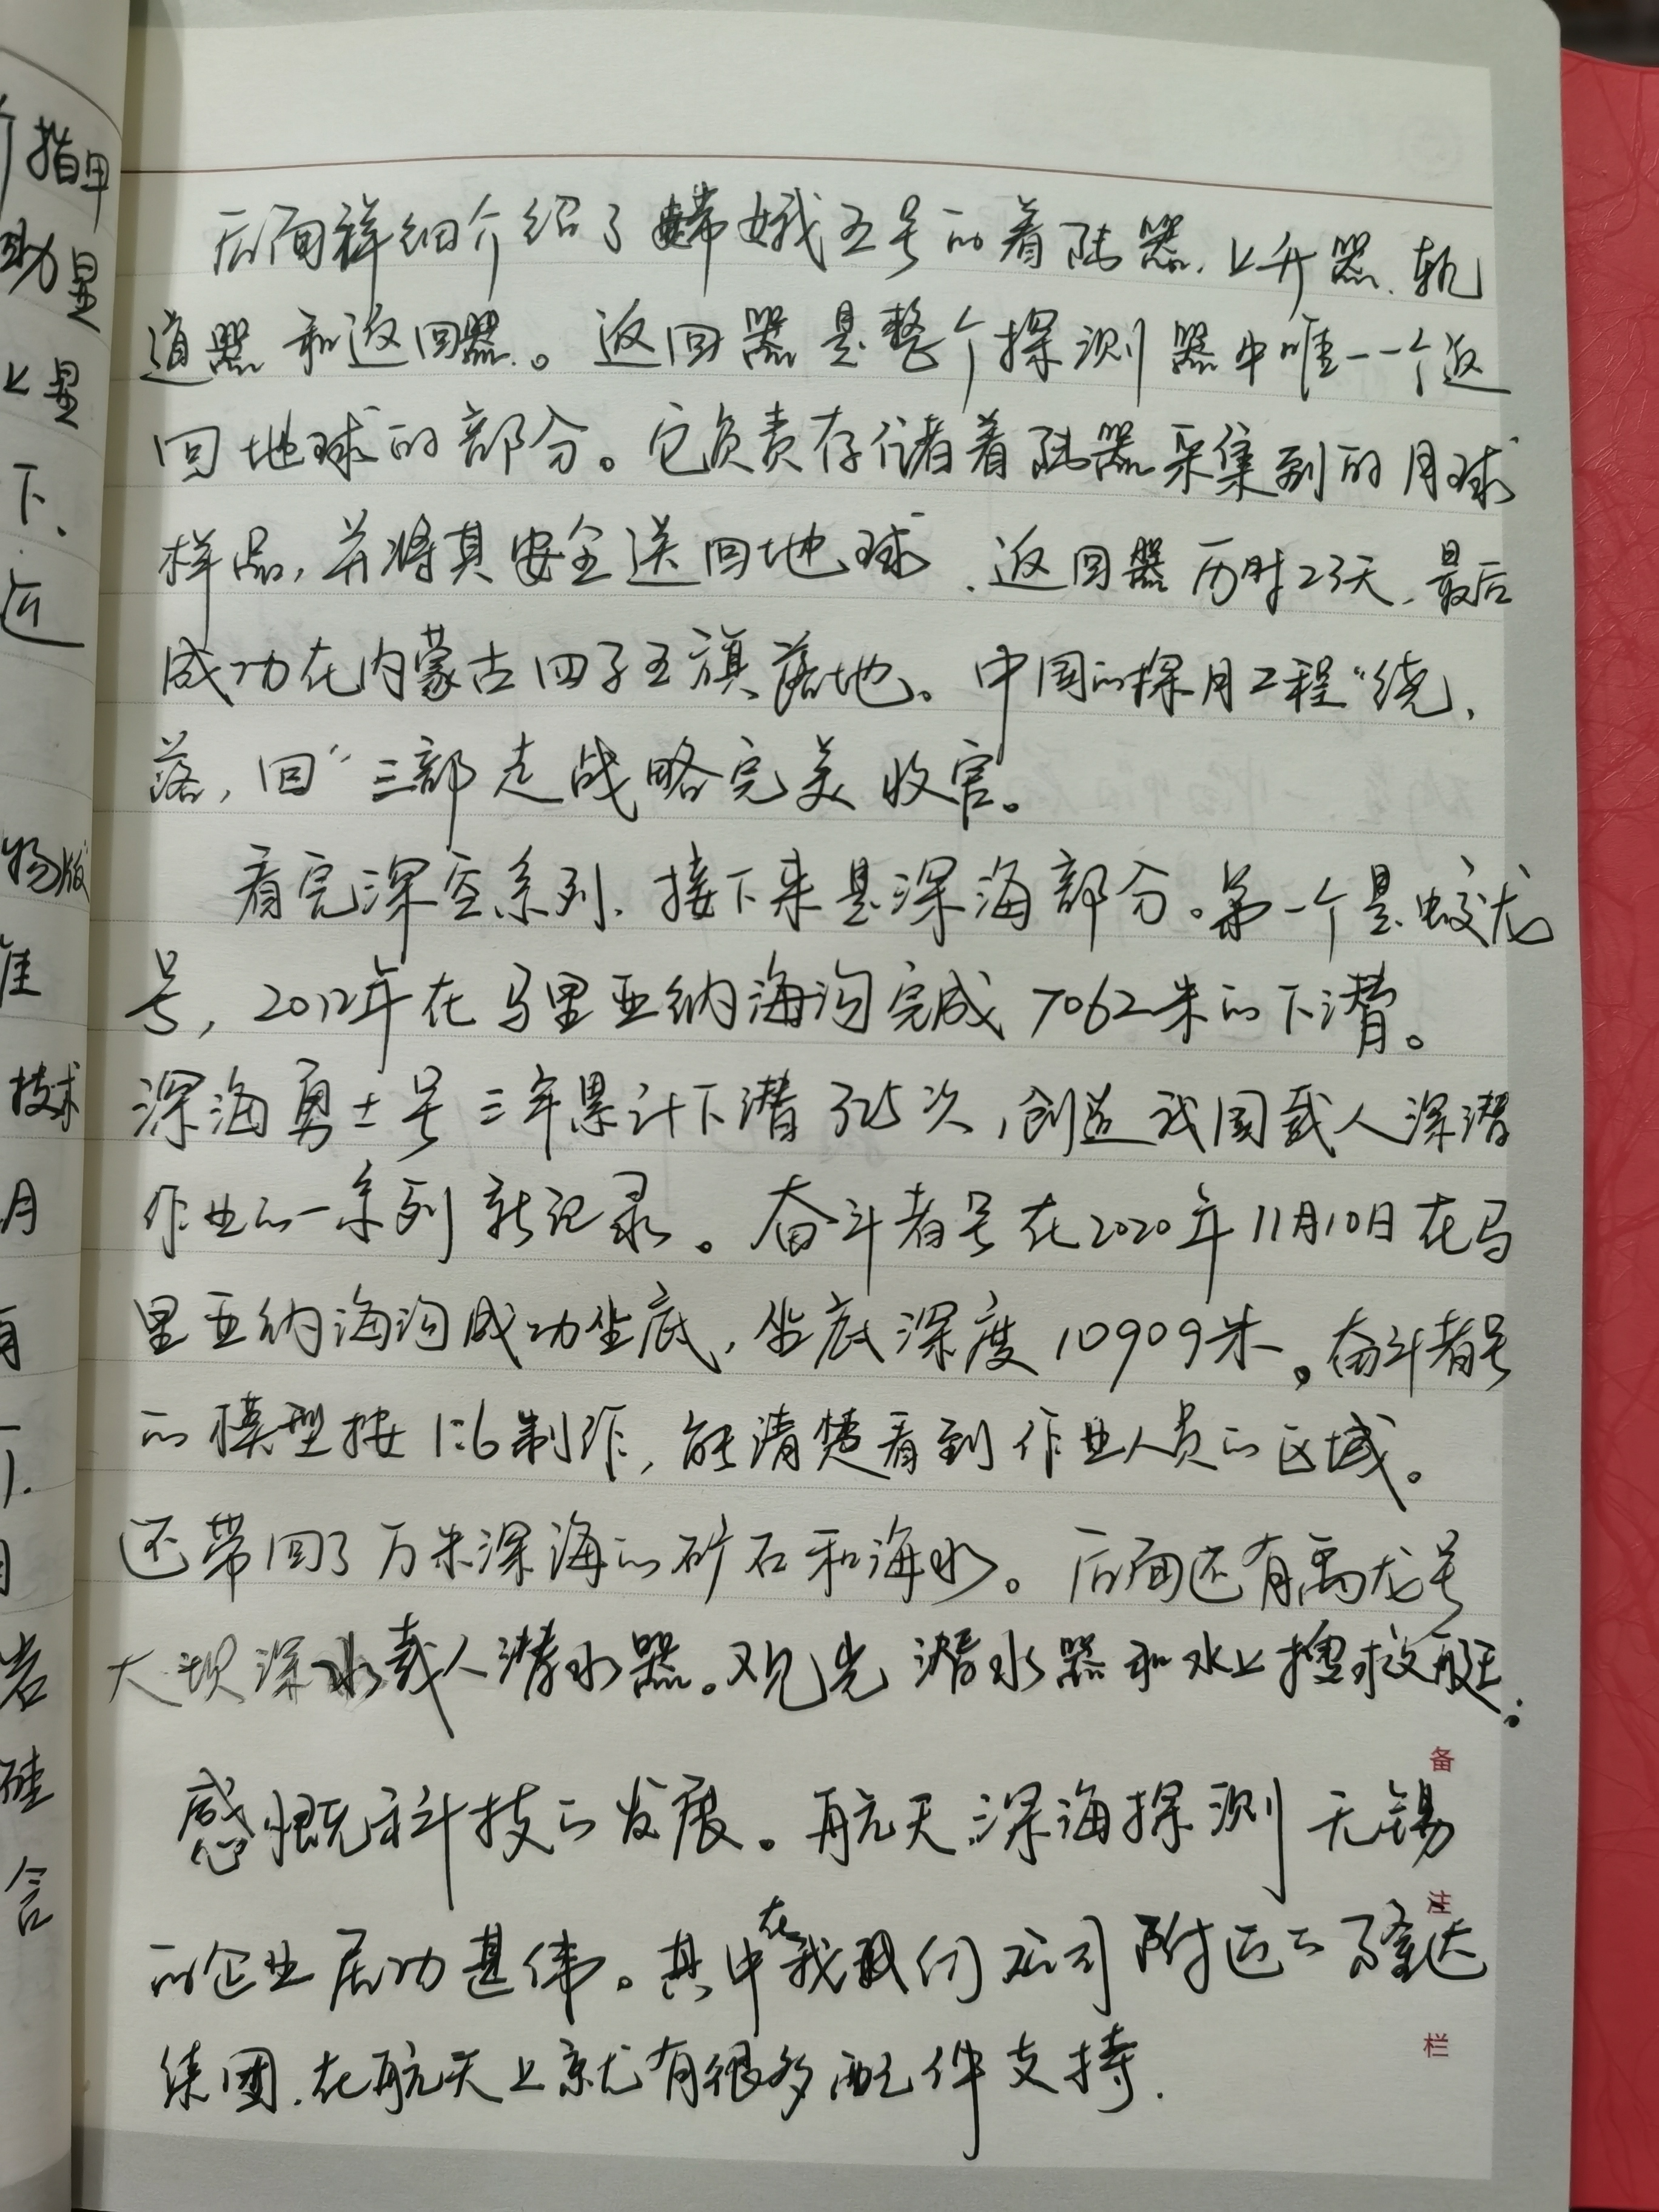 后面详细介绍了嫦娥五号的着陆器、上升器、轨
道器和返回器。返回器是整个探测器中唯一一个返
回地球的部分。它负责存储着陆器采集到的月球
样品,并将其安全送回地球.返回器历时23天,最后
成功在内蒙古四子王旗落地。中国的探月工程“绕,
落,回”三部走战略完美收官。
看完深空系列,接下来是深海部分。第一个是蛟龙
号,2012年在马里亚纳海沟完成7062米的下潜。
深海勇士号三年累计下潜325次,创造我国载人深潜
作业的一系列新记录。奋斗者号在2020年11月10日在马
里亚纳海沟成功坐底,坐底深度10909米。奋斗者号
的模型按1:6制作,能清楚看到作业人员的区域。
还带回了万米深海的矿石和海水。后面还有禹龙号
大坝深水载人潜水器。观光潜水器和水上搜救艇.
感慨科技的发展。再航天深海探测无锡
的企业居功甚伟。其中在我们公司附近的隆达
集团.在航天上就有很多配件支持.
指甲
助量
上是
下.
近
物版
准
技术
月
有
岩
硅
含
备
注
栏